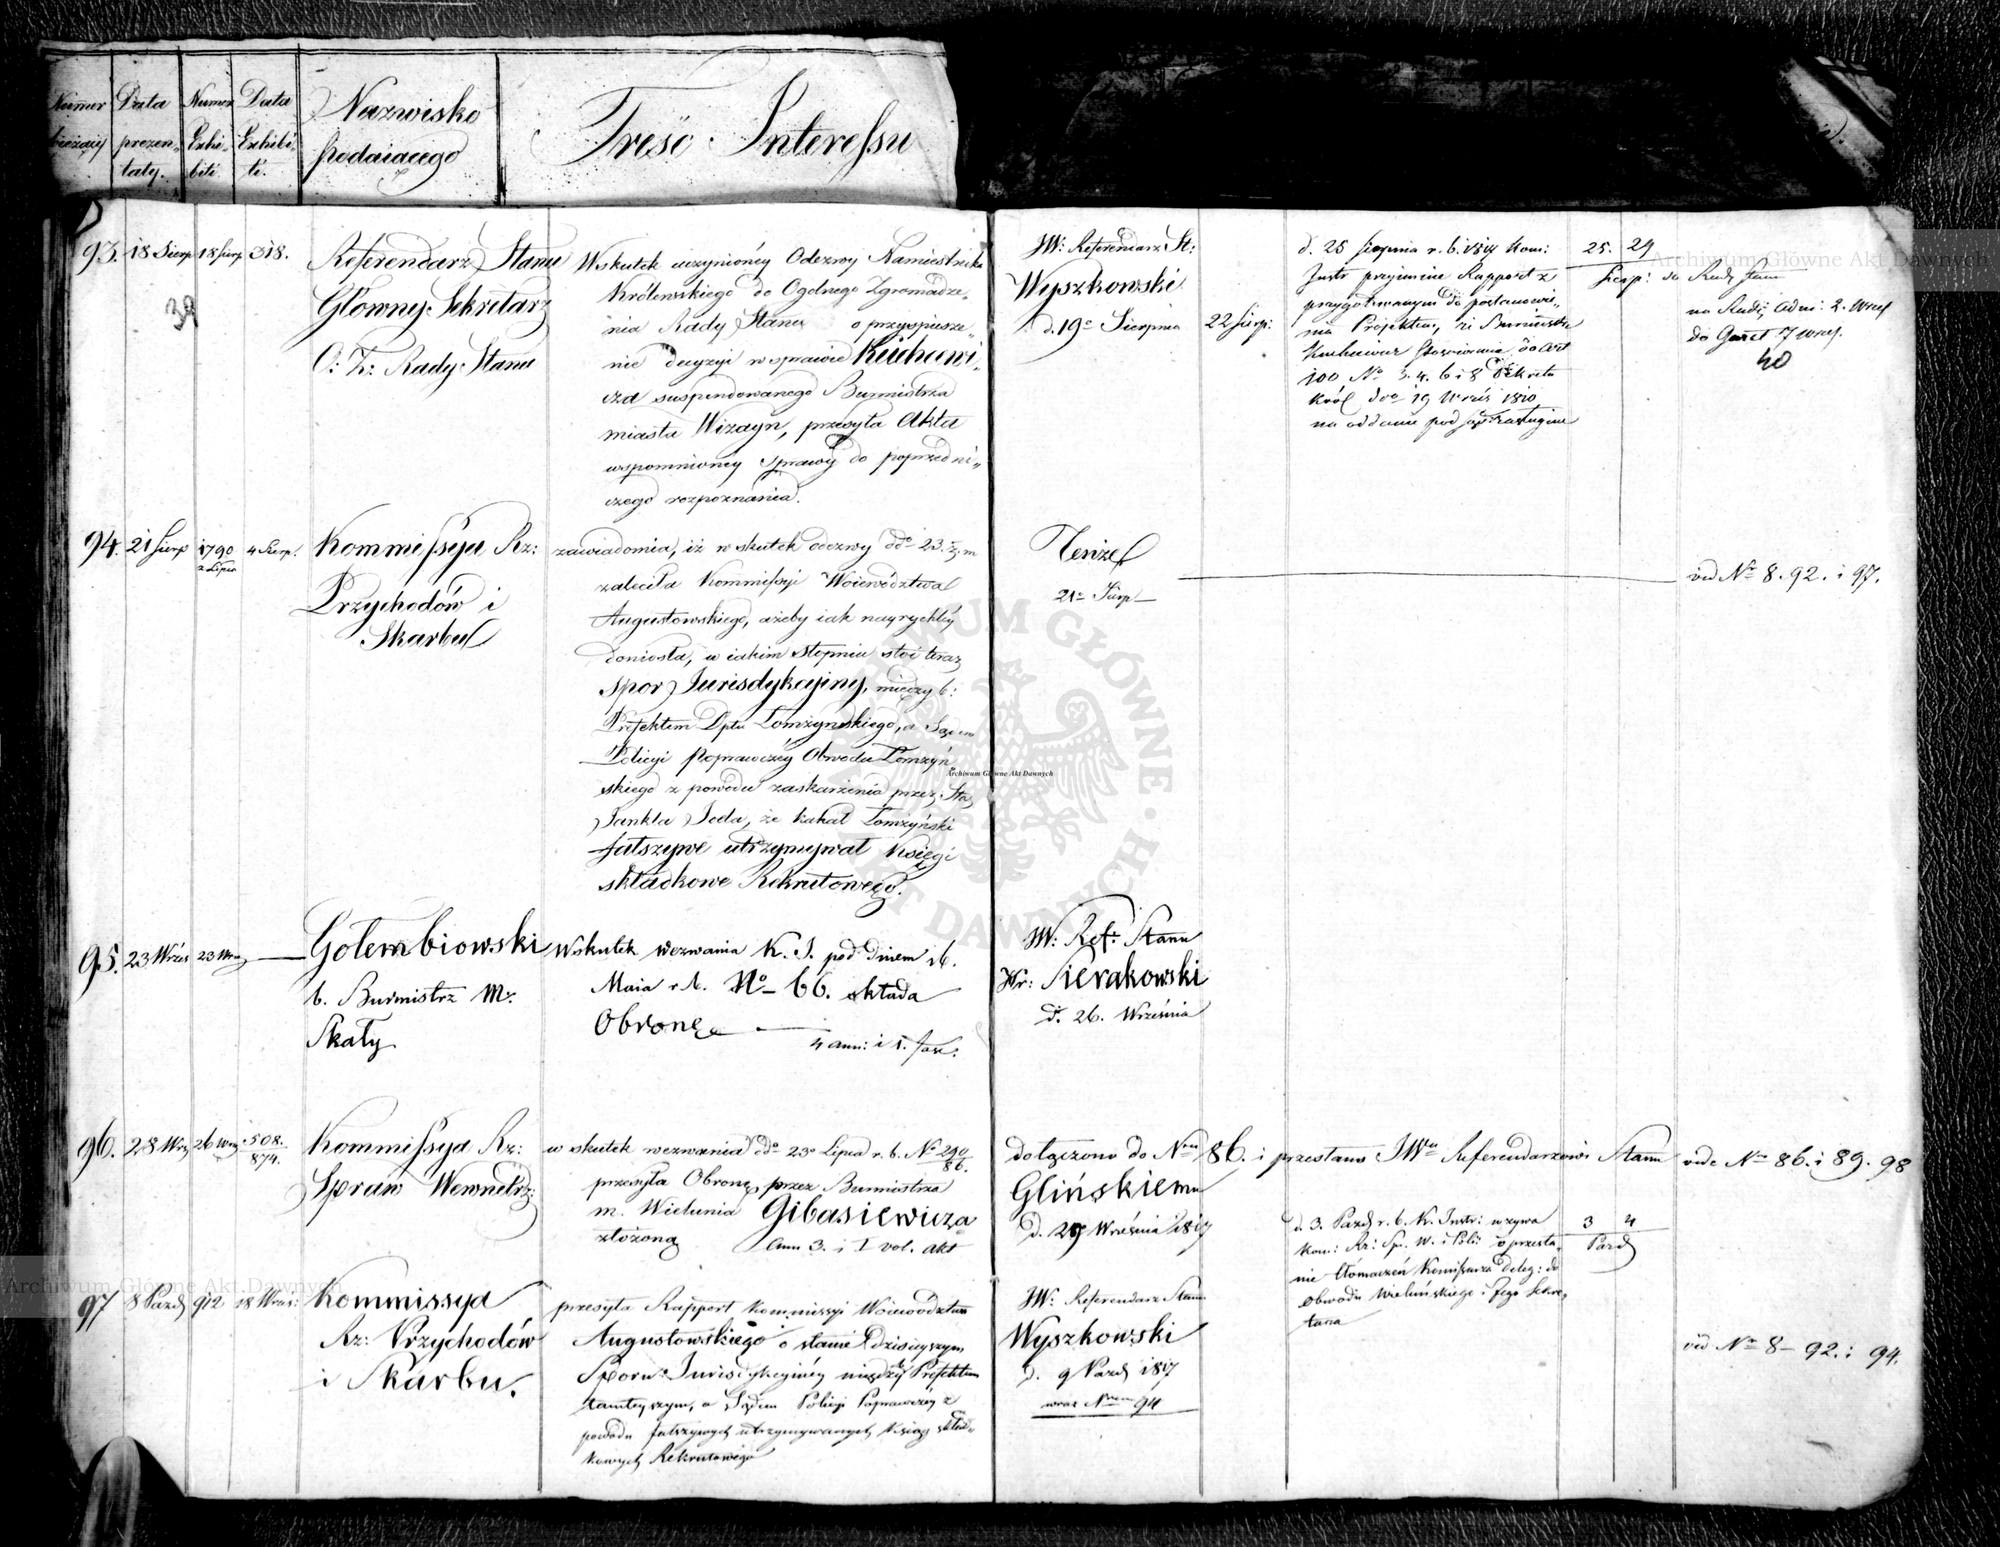 Numer bieżący
Data prezen-
taty.
Numer Exhi-
biti
Data Exhibi-
ti.
Nazwisko
Podaiącego
Treść Interessu
93. 18 Sierp 18 Sierp 318.
39
Referendarz Stanu
Główny Sekretarz
O: Z: Rady Stanu
Wskutek uczynionéy Odezwy Namiestnika
Królewskiego do Ogólnego Zgromadze-
nia Rady Stanu o przyspiesze-
nie decyzyi w sprawie Kuchowi-
cza suspendowanego Burmistrza
miasta Wizayn, przesyła Akta
wspomnioney Sprawy do poprzedni-
czego rozpoznania.
JW: Referendarz St:
Wyszkowski
d. 19o Sierpnia
22 Sierp:
d. 25 Sierpnia r. b. 1817 Kom:
Instr przyjmie Rapport z
przygotowanym do postanowie-
nia Projektem, iż Burmistrz
100 No 3. 4. 6 i 8 Dekretu
Król dto 19 Wrześ 1810
na oddanie pod Sąd zasługuie
25. 29
Sierp: do Rady Stanu
na Radę Admi: 2. Wrześ
do Gazet 7 Wrześ.
40
94. 21 Sierp 1790
z Lipca
4 Sierp.
Kommissya Rz:
Przychodów i
Skarbu
zawiadomia, iż w skutek odezwy ddo 23. z. m
zaleciła Kommissyi Woiewództwa
Augustowskiego, ażeby iak nayrychléy
doniosła, w iakim stopniu stoi teraz
Spor Jurisdykcyiny, między b:
Prefektem Dptu Łomżynskiego, a Sądem
Policyi Poprawczéy Obwodu Łomżyń
skiego z powodu zaskarżenia przez Sta
Jankla Joda, że Kahał Łomżyński
fałszywe utrzymywał Księgi
składkowe Rekrutowego.
Tenże
21o Sierp
vid No 8. 92. i 97.
95. 23 Wrześ 23 Wrz
Gołembiowski
b. Burmistrz M.
Skały
Wskutek wezwania K. J. pod dniem 16.
Maia r. b. No 66. składa
Obronę
4 ann: i 1. fasc.
JW: Ref: Stanu
Hr: Sierakowski
d. 26. Września
96. 28 Wrz 26 Wrz 508.
874.
Kommissya Rz:
Spraw Wewnętrz:
w skutek wezwania ddo 23o Lipca r. b. No 290
86.
przesyła Obronę przez Burmistrza
m. Wielunia Gibasiewicza
złożoną Ann 3. i I vol. akt
dołączono do Nru 86. i przesłano JWu Referendarzowi Stanu
Glińskiemu
d. 29 Września 1817
d. 3. Paźd r. b. K. Instr: wzywa
Kom: Rz: Spr. W. i Poli: o przesła-
nie tłomaczeń Komissarza deleg: do
Obwodu Wieluńskiego i Jego Sekre-
tarza
3 4
Paźd
vide No 86. i 89. 98
97 8 Paźd 912 18 Wrześ:
Kommissya
Rz: Przychodów
i Skarbu.
przesyła Rapport Kommissyi Woiewództwa
Augustowskiego o stanie dzisieyszym
Sporu Jurisdykcyinéy między Prefektem
tamteyszym, a Sądem Policyi Poprawczéy z
powodu fałszywych utrzymywanych Ksiąg skład-
kowych Rekrutowego
JW: Referendarz Stanu
Wyszkowski
d. 9 Paźd 1817
wraz Nrem 94
vid No 8 - 92. i 94.
Archiwum Główne Akt Dawnych
Archiwum Główne Akt Dawnych
ARCHIWUM GŁÓWNE AKT DAWNYCH
Archiwum Główne Akt Dawnych